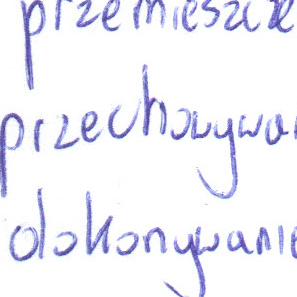 przemieszcze
przechowywa
dokonywanie